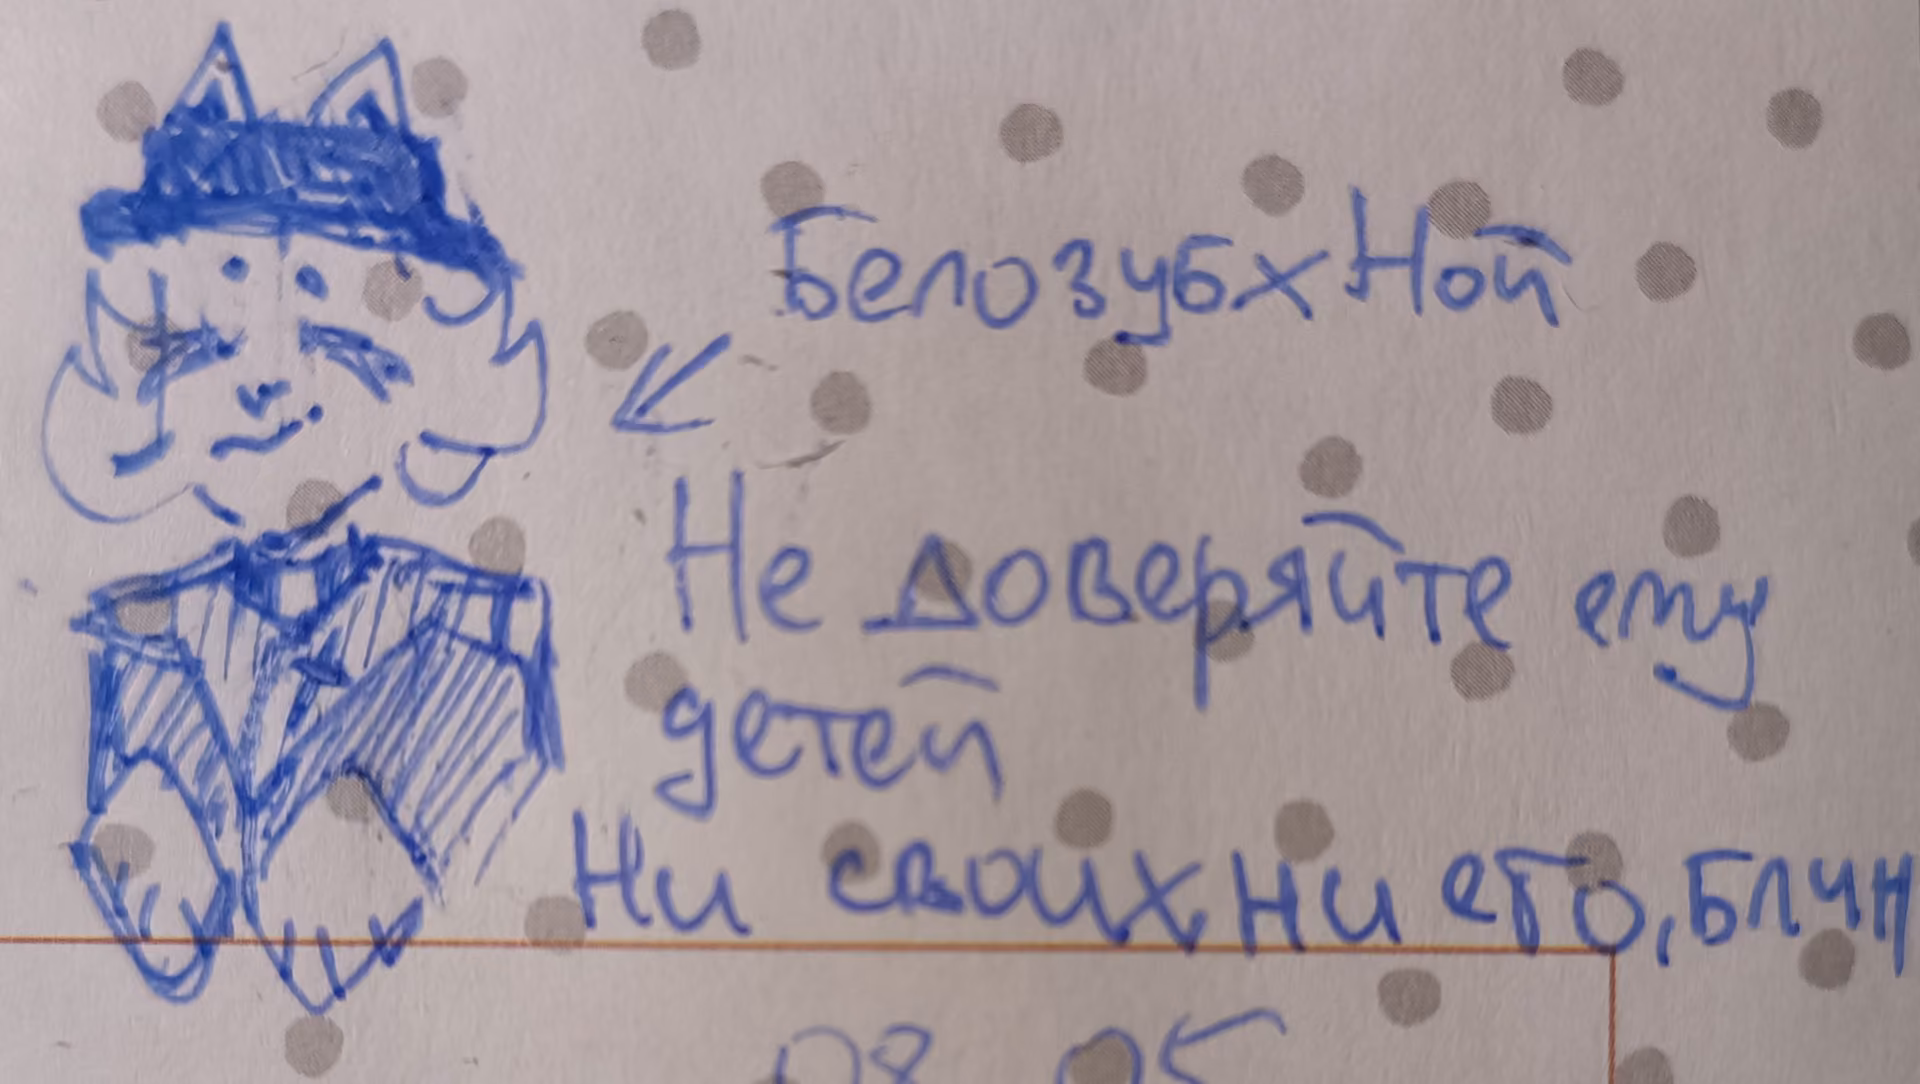 Белозуб х Ной
Не доверяйте ему
детей
Ни своих, ни его, блин
08 05